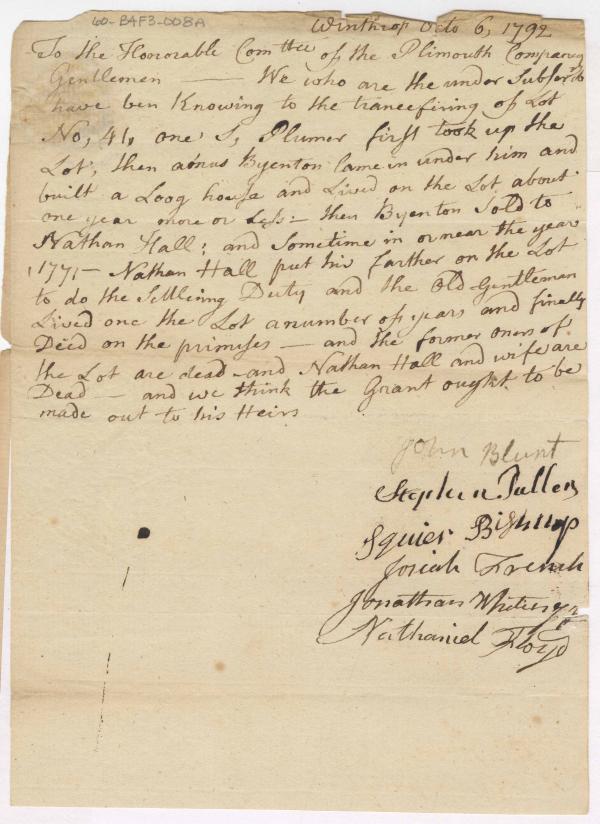 60-B4F3-008A
Winthrop Octo 6, 1792
To the Honorable Comttee of the Plimouth Company
Gentlemen — We who are the under Subscrib
have ben Knowing to the trancefiring of Lot
No, 41, one S, Plumer first took up the
Lot, then amus Byenton came in under him and
built a Loog house and Lived on the Lot about
one year more or Less:— then Byenton Sold to
Nathan Hall; and Sometime in or near the year
1771— Nathan Hall put his farther on the Lot
to do the Settling Duty and the Old Gentleman
Lived one the Lot a number of years and finally
Deied on the primises — and the former oners of
the Lot are dead and Nathan Hall and wife are
Dead — and we think the Grant ought to be
made out to his Heirs
John Blunt
Stephen Pullen
Squier Bishup
Josiah French
Jonathan Whiting Jr
Nathaniel Floyd